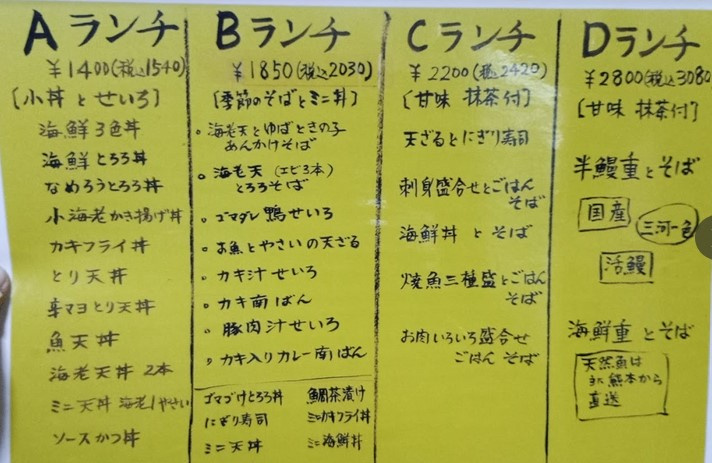 Aランチ
¥1400(税込1540)
〔小丼とせいろ〕
海鮮3色丼
海鮮とろろ丼
なめろうとろろ丼
小海老かき揚げ丼
カキフライ丼
とり天丼
辛マヨとり天丼
魚天丼
海老天丼 2本
ミニ天丼 海老1やさい
ソースかつ丼
Bランチ
¥1850(税込2030)
〔季節のそばとミニ丼〕
海老天とゆばときの子
あんかけそば
海老天(エビ3本)
とろろそば
ゴマダレ鴨せいろ
お魚とやさいの天ざる
カキ汁せいろ
カキ南ばん
豚肉汁せいろ
カキ入りカレー南ばん
ゴマづけとろろ丼 鯛茶漬け
にぎり寿司 ミニカキフライ丼
ミニ天丼 ミニ海鮮丼
Cランチ
¥2200(税込2420)
〔甘味 抹茶付〕
天ざるとにぎり寿司
刺身盛合せとごはん
そば
海鮮丼 と そば
焼魚三種盛とごはん
そば
お肉いろいろ盛合せ
ごはん そば
Dランチ
¥2800(税込3080
〔甘味 抹茶付〕
半鰻重とそば
国産
三河一色
活鰻
海鮮重とそば
天然魚は
熊本から
直送